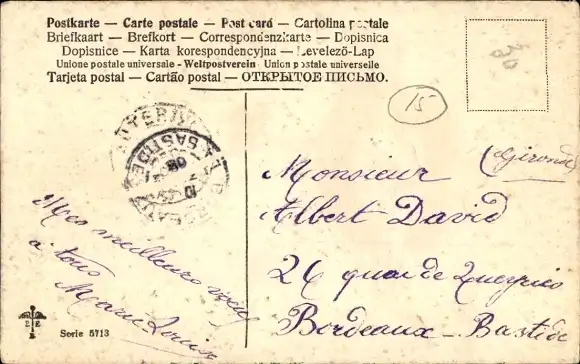 Postkarte — Carte postale — Post card — Cartolina postale
Briefkaart — Brefkort — Correspondenzkarte — Dopisnica
Dopisnice — Karta korespondencyjna — Levelező-Lap
Unione postale universale - Weltpostverein Union postale universelle
Tarjeta postal — Cartão postal — ОТКРЫТОЕ ПИСЬМО.
15
(Gironde)
Monsieur
Albert David
26 quai de Queyries
Bordeaux - Bastide
BASTIDE
08
Mes meilleurs
à tous
Marie Louise
Serie 5713